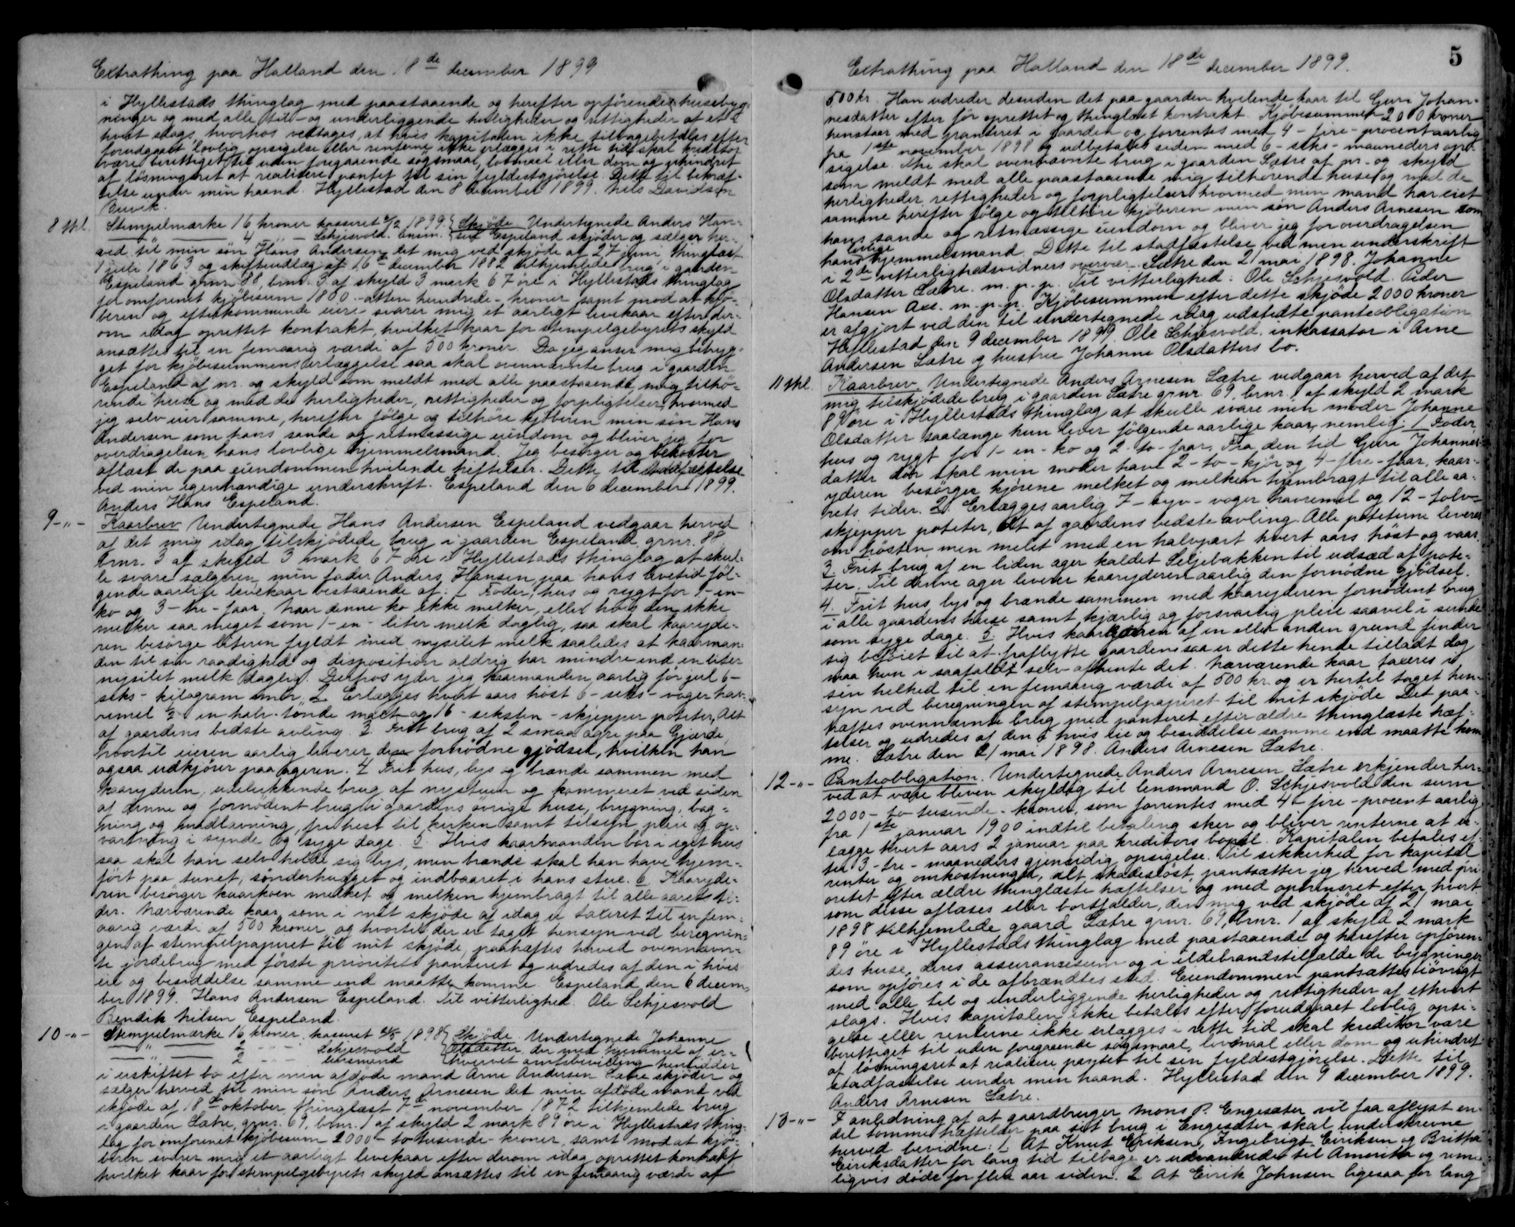 Extrathing paa Halland den 18de december 1899
i Hyllestads thinglag med paastaaende og herefter opförendes husebyg-
ninger og med alle til- og underliggende herligheder og rettigheder af et
hvert slags, hvorhos vedtages, at hvis kapitalen ikke tilbagebetales efter
forudgaaet lovlig opsigelse eller renterne ikke erlægges i rette tid skal kreditor
være berettiget til uden foregaaende sögsmaal, lovmaal eller dom og uhindret
af lösningsret at realisere pantet til sin fyldestgjörelse. Dette til bekræf-
telse under min haand. Hyllestad den 8 december 1899. Nils Davidsen
8 skl. Stempelmærke 16 kroner kasseret 6/12 1899 Skjöde Undertegnede Anders Han-
4 Schjesvold. lensm. sen Espeland skjöder og sælger her-
ved til min sön Hans Andersen det mig ved skjöde af 27 juni, thinglæst
1 juli 1863 og skifteudlæg af 16 december 1882 tilhjemlede brug i gaarden
Espeland grnr. 88, brnr. 3 af skyld 3 mark 67 öre i Hyllestads thinglag
for omforenet kjöbesum 1800 - atten hundrede - kroner samt mod at kjö-
beren og efterkommende eiere svarer mig et aarligt levekaar efter der-
om idag oprettet kontrakt, hvilket kaar for stempelgebyrets skyld
ansættes til en femaarig værdi af 500 kroner. Da jeg anser mig betryg-
get for kjöbesummens erlæggelse saa skal ovennævnte brug i gaarden
Espeland af nr. og skyld som meldt med alle paastaaende mig tilhö-
rende huse og med de herligheder, rettigheder og forpligtelser hvormed
jeg selv eier samme, herefter fölge og tilhöre kjöberen min sön Hans
Andersen som hans sande og retmæssige eiendom og bliver jeg for
overdragelsen hans lovlige hjemmelsmand. Jeg besörger og bekoster
aflæst de paa eiendommen hvilende heftelser. Dette til stadfæstelse
ved min egenhændige underskrift. Espeland den 6 december 1899.
Anders Hans Espeland.
9 -"- Kaarbrev Undertegnede Hans Andersen Espeland vedgaar herved
af det mig idag tilskjödede brug i gaarden Espeland, grnr. 88
brnr. 3 af skyld 3 mark 67 öre i Hyllestads thinglag at skul-
le svare sælgeren, min fader Anders Hansen, paa hans levetid föl-
gende aarlige levekaar bestaaende af: 1 Foder, hus og rygt for 1-en-
ko og 3 - tre - faar, naar denne ko ikke melker, eller hvis den ikke
melker saa meget som 1-en- liter melk daglig, saa skal kaaryde-
ren besörge literen fyldt med nysilet melk saaledes at kaarman-
den til sin raadighed og disposition aldrig har mindre end en liter
nysilet melk daglig. Derhos yder jeg kaarmanden aarlig for jul 6-
seks - kilogram smör. 2 Erlægges hvert aars höst 6 - seks - voger hav-
remel 1/2 en halv-tönde malt og 16 - seksten - skjepper poteter, Alt
af gaardens bedste avling. 3 Frit brug af 2 smaa agre paa Gjærde
hvortil eieren aarlig leverer den fornödne gjödsel, hvilken han
ogsaa udkjörer paa ageren. 4 Frit hus, lys og brænde sammen med
kaaryderen, udelukkende brug af nystuen og kammeret ved siden
af denne og fornödent brug i gaardens övrige huse, brygning, bag-
ning og madlavning, fri hest til kirken samt tilsyn, pleie og op-
vartning i synde og syge dage. 5 Hvis kaarmanden bor i eget hus
saa skal han selv holde sig lys, men brænde skal han have hjem-
fört paa tunet, sönderhugget og indbaaret i hans stue. 6 Kaaryde-
ren besörger kaarkoen melket og melken hjembragt til alle aarets ti-
der. Nærværende kaar, som i mit skjöde af idag er taxeret til en fem-
aarig værdi af 500 kroner og hvortil der er taget hensyn ved beregnin-
gen af stempelpapiret til mit skjöde, paahæftes herved ovennævn-
te jordebrug med förste prioritets panteret og udredes af den i hvis
eie og besiddelse samme end maatte komme. Espeland den 6 decem-
ber 1899. Hans Andersen Espeland. Til vitterlighed. Ole Schjesvold
Bendik Nilsen Espeland.
10 -"- Stempelmærke 16 kroner kasseret 1898 Skjöde Undertegnede Johanne
2 Schjesvold Olsdatter der med hjemmel af er-
lensmand hvervet uskiftebevilling henridder
i uskiftet bo efter min afdöde mand Arne Andersen Sætre skjöder og
sælger herved til min sön Anders Arnesen det min afdöde mand ved
skjöde af 18de oktober, thinglæst 7de november 1872 tilhjemlede brug
i gaarden Sætre, grnr. 69, brnr. 1 af skyld 2 mark 89 öre i Hyllestads thing-
lag for omforenet kjöbesum 2000 - to tusende - kroner, samt mod at kjö-
beren svarer mig et aarligt levekaar efter derom idag oprettet kontrakt
hvilket kaar for stempelgebyrets skyld ansættes til en femaarig værdi af
Extrathing paa Halland den 18de december 1899. 5
500 kr. Han udreder desuden det paa gaarden hvilende kaar til Guri Johan-
nesdatter efter för oprettet og thinglæst kontrakt. Kjöbesummen 2000 kroner
henstaar med panteret i gaarden og forrentes med 4 - fire - procent aarlig
fra 1ste november 1898 og udbetales siden med 6 - seks - maaneders op-
sigelse. Thi skal ovennævnte brug i gaarden Sætre af nr. og skyld
som meldt med alle paastaaende mig tilhörende huse og med de
herligheder rettigheder og forpligtelser hvormed min mand har eiet
samme herefter fölge og tilhöre kjöberen min sön Anders Arnesen som
hans sande og retmæssige eiendom og bliver jeg for overdragelsen
hans lovlige hjemmelsmand. Dette til stadfæstelse ved min underskrift
i 2de vitterlighedsvidners overvær. Sætre den 21 mai 1898. Johanne
Olsdatter Sætre. m. p. p. Til vitterlighed: Ole Schjesvold. Peder
Hansen Aas. m. p. p. Kjöbesummen efter dette skjöde 2000 kroner
er afgjort ved den til undertegnede idag udstedte panteobligation
Hyllestad den 9 december 1899. Ole Schjesvold. inkassator i Arne
Andersen Sætre og hustru Johanne Olsdatters bo.
11 skl. Kaarbrev Undertegnede Anders Arnesen Sætre vedgaar herved af det
mig tilskjödede brug i gaarden Sætre grnr. 69, brnr. 1 af skyld 2 mark
89 öre i Hyllestads thinglag at skulle svare min moder Johanne
Olsdatter saalænge hun lever fölgende aarlige kaar, nemlig: 1 Foder,
hus og rygt for 1 - en - ko og 2 - to - faar, Fra den tid Guri Johannes-
datter dör skal min moder have 2 - to - kjör og 4 - fire - faar, kaar-
yderen besörger kjörene melket og melken hjembragt til alle aa-
rets tider. 2 Erlægges aarlig 7 - syv - voger havremel og 12 - tolv-
skjepper poteter, Alt af gaardens bedste avling. Alle poteterne leveres
om hösten men melet med en halvpart hvert aars höst og vaar.
3. Frit brug af en liden ager kaldet Seljebakken til udsæd af pote-
ter. Til denne ager leverer kaaryderen aarlig den fornödne gjödsel.
4. Frit hus, lys og brænde sammen med kaaryderen fornödent brug
i alle gaardens huse samt kjærlig og forsvarlig pleie saavel i sunde
som syge dage. 5 Hvis kaar af en eller anden grund finder
sig beföiet til at fraflytte gaarden saa er dette hende tilladt dog
maa hun i saafald selv afhente det. Nærværende kaar taxeres i
sin helhed til en femaarig værdi af 500 kr. og er hertil taget hen-
syn ved beregningen af stempelpapiret til mit skjöde. Det paa-
hæftes ovennævnte brug med panteret efter ældre thinglæste hæf-
telser og udredes af den i hvis eie og besiddelse samme end maatte kom-
me. Sætre den 21 mai 1898. Anders Arnesen Sætre.
12 -"- Panteobligation. Undertegnede Anders Arnesen Sætre erkjender her-
ved at være bleven skyldig til lensmand O. Schjesvold den sum
2000 - to tusinde - kroner, som forrentes med 4 - fire - procent aarlig
fra 1ste januar 1900 indtil betaling sker og bliver renterne at er-
lægge hvert aars 2 januar paa kreditors bopæl. Kapitalen betales ef-
ter 3 - tre - maaneders gjensidig opsigelse. Til sikkerhed for kapital
renter og omkostninger, alt skadeslöst, pantsætter jeg herved med pri-
oritet efter ældre thinglæste hæftelser og med opryknesret efter hvert
som disse aflæses eller bortfalder, den mig ved skjöde af 21 mai
1898 tilhjemlede gaard Sætre grnr. 69, brnr. 1 af skyld 2 mark
89 öre i Hyllestads thinglag med paastaaende og herefter opfören-
des huse, deres assurancesum og i ildebrandstilfælde de bygninger
som opföres i de afbrændtes sted. Eiendommen pantsættes iövrigt
med alle til og underliggende herligheder og rettigheder af ethvert
slags. Hvis kapitalen ikke betales efter forudgaaet lovlig opsi-
gelse eller renterne ikke erlægges i rette tid skal kreditor være
berettiget til uden foregaaende sögsmaal, lovmaal eller dom og uhindret
af lösningsret at realisere pantet til sin fyldestgjörelse. Dette til
stadfæstelse under min haand. Hyllestad den 9 december 1899.
Anders Arnesen Sætre.
13 -"- I anledning af at gaardbruger Mons P. Engesæter vil faa aflyst en-
del tomme hæftelser paa sit brug i Engesæter skal undeskrevne
herved bevidne: 1 At Knut Eriksen, Ingebrigt Eiriksen og Britha
Eiriksdatter for lang tid tilbage er udvandrede til Amerika og rime-
ligvis döde for flere aar siden. 2 At Eirik Johnsen ligesaa for lang